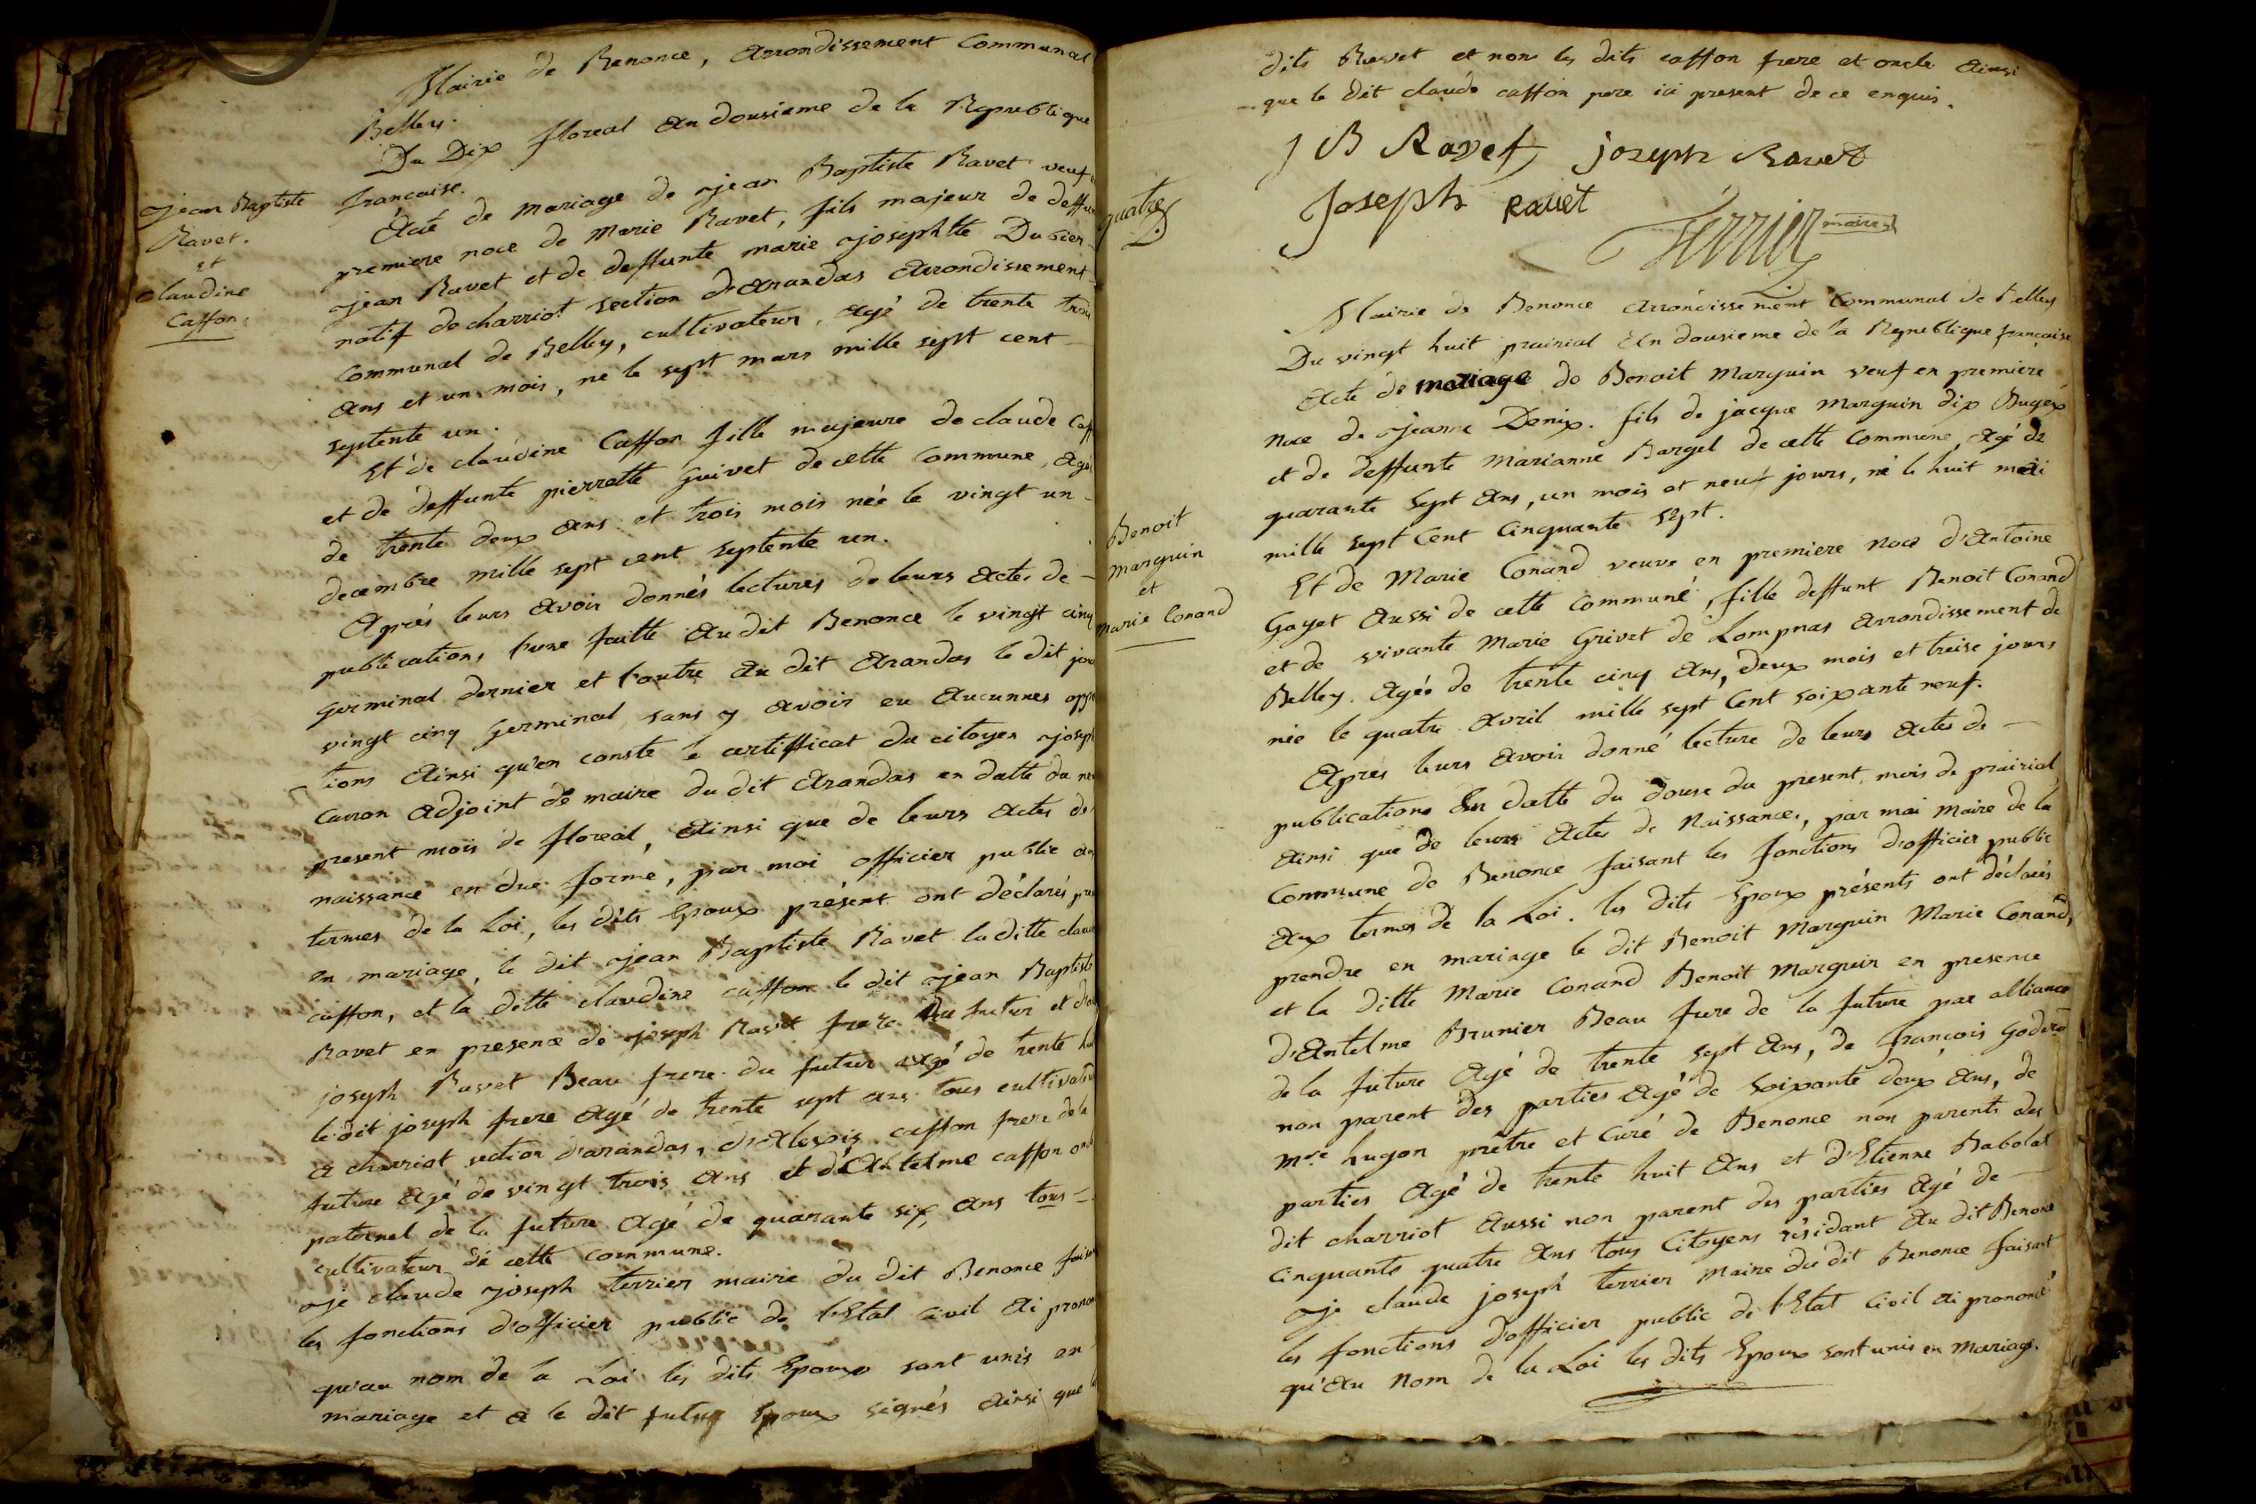 Mairie de Benonce, arrondissement Communal
Belley.
Du Dix floreal an dousieme de la Republique
francaise.
Jean Baptiste
Ravet.
et
Claudine
Caffon.
Acte de mariage de jean Baptiste Ravet veuf
premiere noce de Marie Ravet, fils majeur de deffun
jean Ravet et de deffunte marie josephtte Dubier
natif de charriot section d'arandas arrondissement
Communal de Belley, cultivateur, agé de trente trois
ans et un mois, né le sept mars mille sept cent
septente un.
Et de claudine Caffon fille majeure de claude Caff
et de deffunte pierrette Guivet de cette Commune, agé
de trente deux ans et trois mois née le vingt un
decembre mille sept cent septente un.
Aprés leurs avoir donnés lectures de leurs actes de
publications l'une faitte au dit Benonce le vingt cinq
germinal dernier et l'autre au dit arandas le dit jour
vingt cinq germinal sans y avoir eu aucunnes oppo
tions ainsi qu'en conste le certifficat du citoyen joseph
Carron adjoint de maire du dit arandas en datte du ne
present mois de floreal, ainsi que de leurs actes de
naissance en due forme, par moi officier public au
termes de la Loi, les dits Epoux présent ont déclarés pre
en mariage, le dit jean Baptiste Ravet la ditte claud
caffon, et la ditte claudine caffon le dit jean Baptiste
Ravet en presence de joseph Ravet frere du futur et d'au
joseph Ravet Beau frere du futur agé de trente hui
le dit joseph frere agé de trente sept ans tous cultivateu
a charriot section d'arandas, d'alexis caffon frere de la
future agé de vingt trois ans et d'antelme caffon oncl
paternel de la future agé de quarante six ans tous
cultivateur de cette Commune.
Je claude joseph terrier maire du dit Benonce faisan
les fonctions d'officier public de l'Etat civil ai prononc
qu'au nom de la Loi les dits Epoux sont unis en
mariage et a le dit futur Epoux signés ainsi que
dits Ravet et non les dits caffon frere et oncle ainsi
que le dit claude caffon pere ici present de ce enquis.
J B Ravet joseph Ravet
Joseph Ravet
Terrier maire
quatre
Mairie de Benonce arrondissement Communal de Belley
Du vingt huit prairial an dousieme de la Republique française
Acte de mariage de Benoit Marguin veuf en premiere
Noce de Jeanne Denix. fils de jacque Marguin dix Bugex
et de deffunte Marianne Bargel de cette Commune, agé de
quarante sept ans, un mois et neuf jours, né le huit mai
mille sept Cent Cinquante sept.
Benoit
marguin
et
marie Conand
Et de Marie Conand veuve en premiere noce d'Antoine
Gayet aussi de cette Commune, fille deffunt Benoit Conand
et de vivante Marie Grivet de Lompnas arrondissement de
Belley. agée de trente cinq ans, deux mois et treise jours
née le quatre avril mille sept Cent soixante neuf.
Aprés leurs avoir donné lecture de leurs actes de
publications en datte du douse du present mois de prairial
ainsi que de leurs actes de Naissance, par moi Maire de la
Commune de Benonce faisant les fonctions d'officier public
aux termes de la Loi. les dits Epoux présents ont déclarés
prendre en mariage le dit Benoit Marguin Marie Conand,
et la ditte Marie Conand Benoit Marguin en presence
d'Antelme Brunier Beau frere de la future par alliance
de la future agé de trente sept ans, de françois Goderd
non parent des parties agé de soixante deux ans, de
Mre hugon prêtre et Curé de Benonce non parents des
parties agé de trente huit ans et d'Etienne Babolat
dit charriot aussi non parent des parties agé de
Cinquante quatre ans tous Citoyens résidant au dit Benonce
Je claude joseph terrier Maire du dit Benonce faisant
les fonctions d'officier public de l'Etat Civil ai prononcé
qu'au Nom de la Loi les dits Epoux sont unis en Mariage.